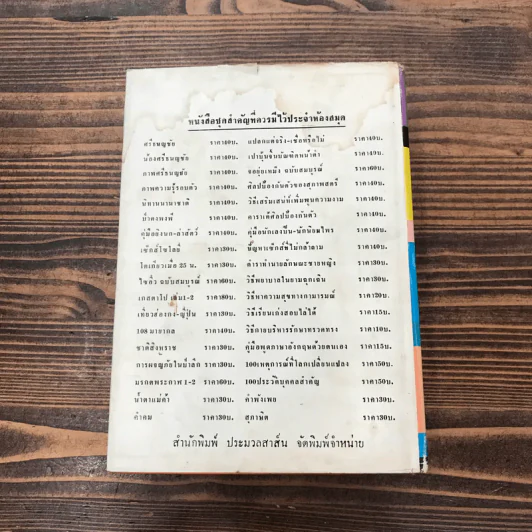 หนังสือชุดสำคัญที่ควรมีไว้ประจำห้องสมุด
ศรีธนญชัย ราคา40บ. แปลกแต่จริง-เชื่อหรือไม่ ราคา40บ.
น้องศรีธนญชัย ราคา40บ. เปาบุ้นจิ้นบัณฑิตหน้าดำ ราคา40บ.
ภาพศรีธนญชัย ราคา40บ. จูล่ง ฉบับสมบูรณ์ ราคา60บ.
ภาพความรู้รอบตัว ราคา40บ. ศิลป้องกันตัวของสุภาพสตรี ราคา40บ.
นิทานนานาชาติ ราคา40บ. วิธีเสริมเสน่ห์เพิ่มพูนความงาม ราคา40บ.
ป่าดงพงพี ราคา40บ. คาราเต้ศิลป้องกันตัว ราคา40บ.
คู่มือยิงนก-ล่าสัตว์ ราคา40บ. คู่มือนักเลงปืน-นักนิยมไพร ราคา40บ.
เซ็กส์โซไซตี้ ราคา30บ. ปัญหาเซ็กส์ที่ไม่กล้าถาม ราคา40บ.
โตเกียวเมื่อ 25 น. ราคา30บ. ตำราทำนายลักษณะชายหญิง ราคา30บ.
ไซอิ๋ว ฉบับสมบูรณ์ ราคา60บ. วิธีพยาบาลในยามฉุกเฉิน ราคา30บ.
เกสตาโป เล่ม1-2 ราคา80บ. วิธีหาความสุขทางกามารมณ์ ราคา20บ.
เที่ยวฮ่องกง-ญี่ปุ่น ราคา30บ. วิธีเรียนเก่งสอบไล่ได้ ราคา15บ.
108 มายากล ราคา40บ. วิธีกายบริหารรักษาทรวดทรง ราคา10บ.
ชาติสิงหราช ราคา30บ. คู่มือพูดภาษาอังกฤษด้วยตนเอง ราคา15บ.
การผจญภัยในป่าลึก ราคา30บ. 100เหตุการณ์ที่โลกเปลี่ยนแปลง ราคา50บ.
มรดกพระกาฬ 1-2 ราคา60บ. 100ประวัติบุคคลสำคัญ ราคา50บ.
น้ำตาแม่ค้า ราคา30บ. คำพังเพย ราคา30บ.
คำคม ราคา30บ. สุภาษิต ราคา30บ.
สำนักพิมพ์ ประมวลสาส์น จัดพิมพ์จำหน่าย